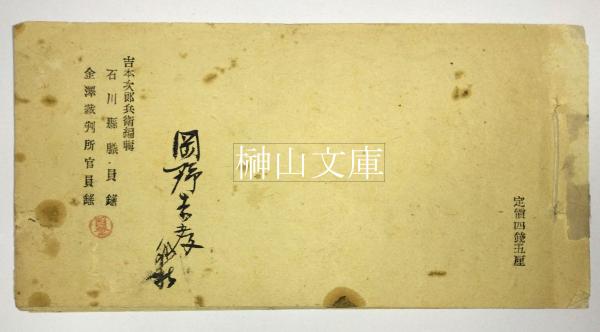 定價四錢五厘
榊山文庫
岡野
吉本次郎兵衛編輯
石川縣職員錄
金澤裁判所官員錄